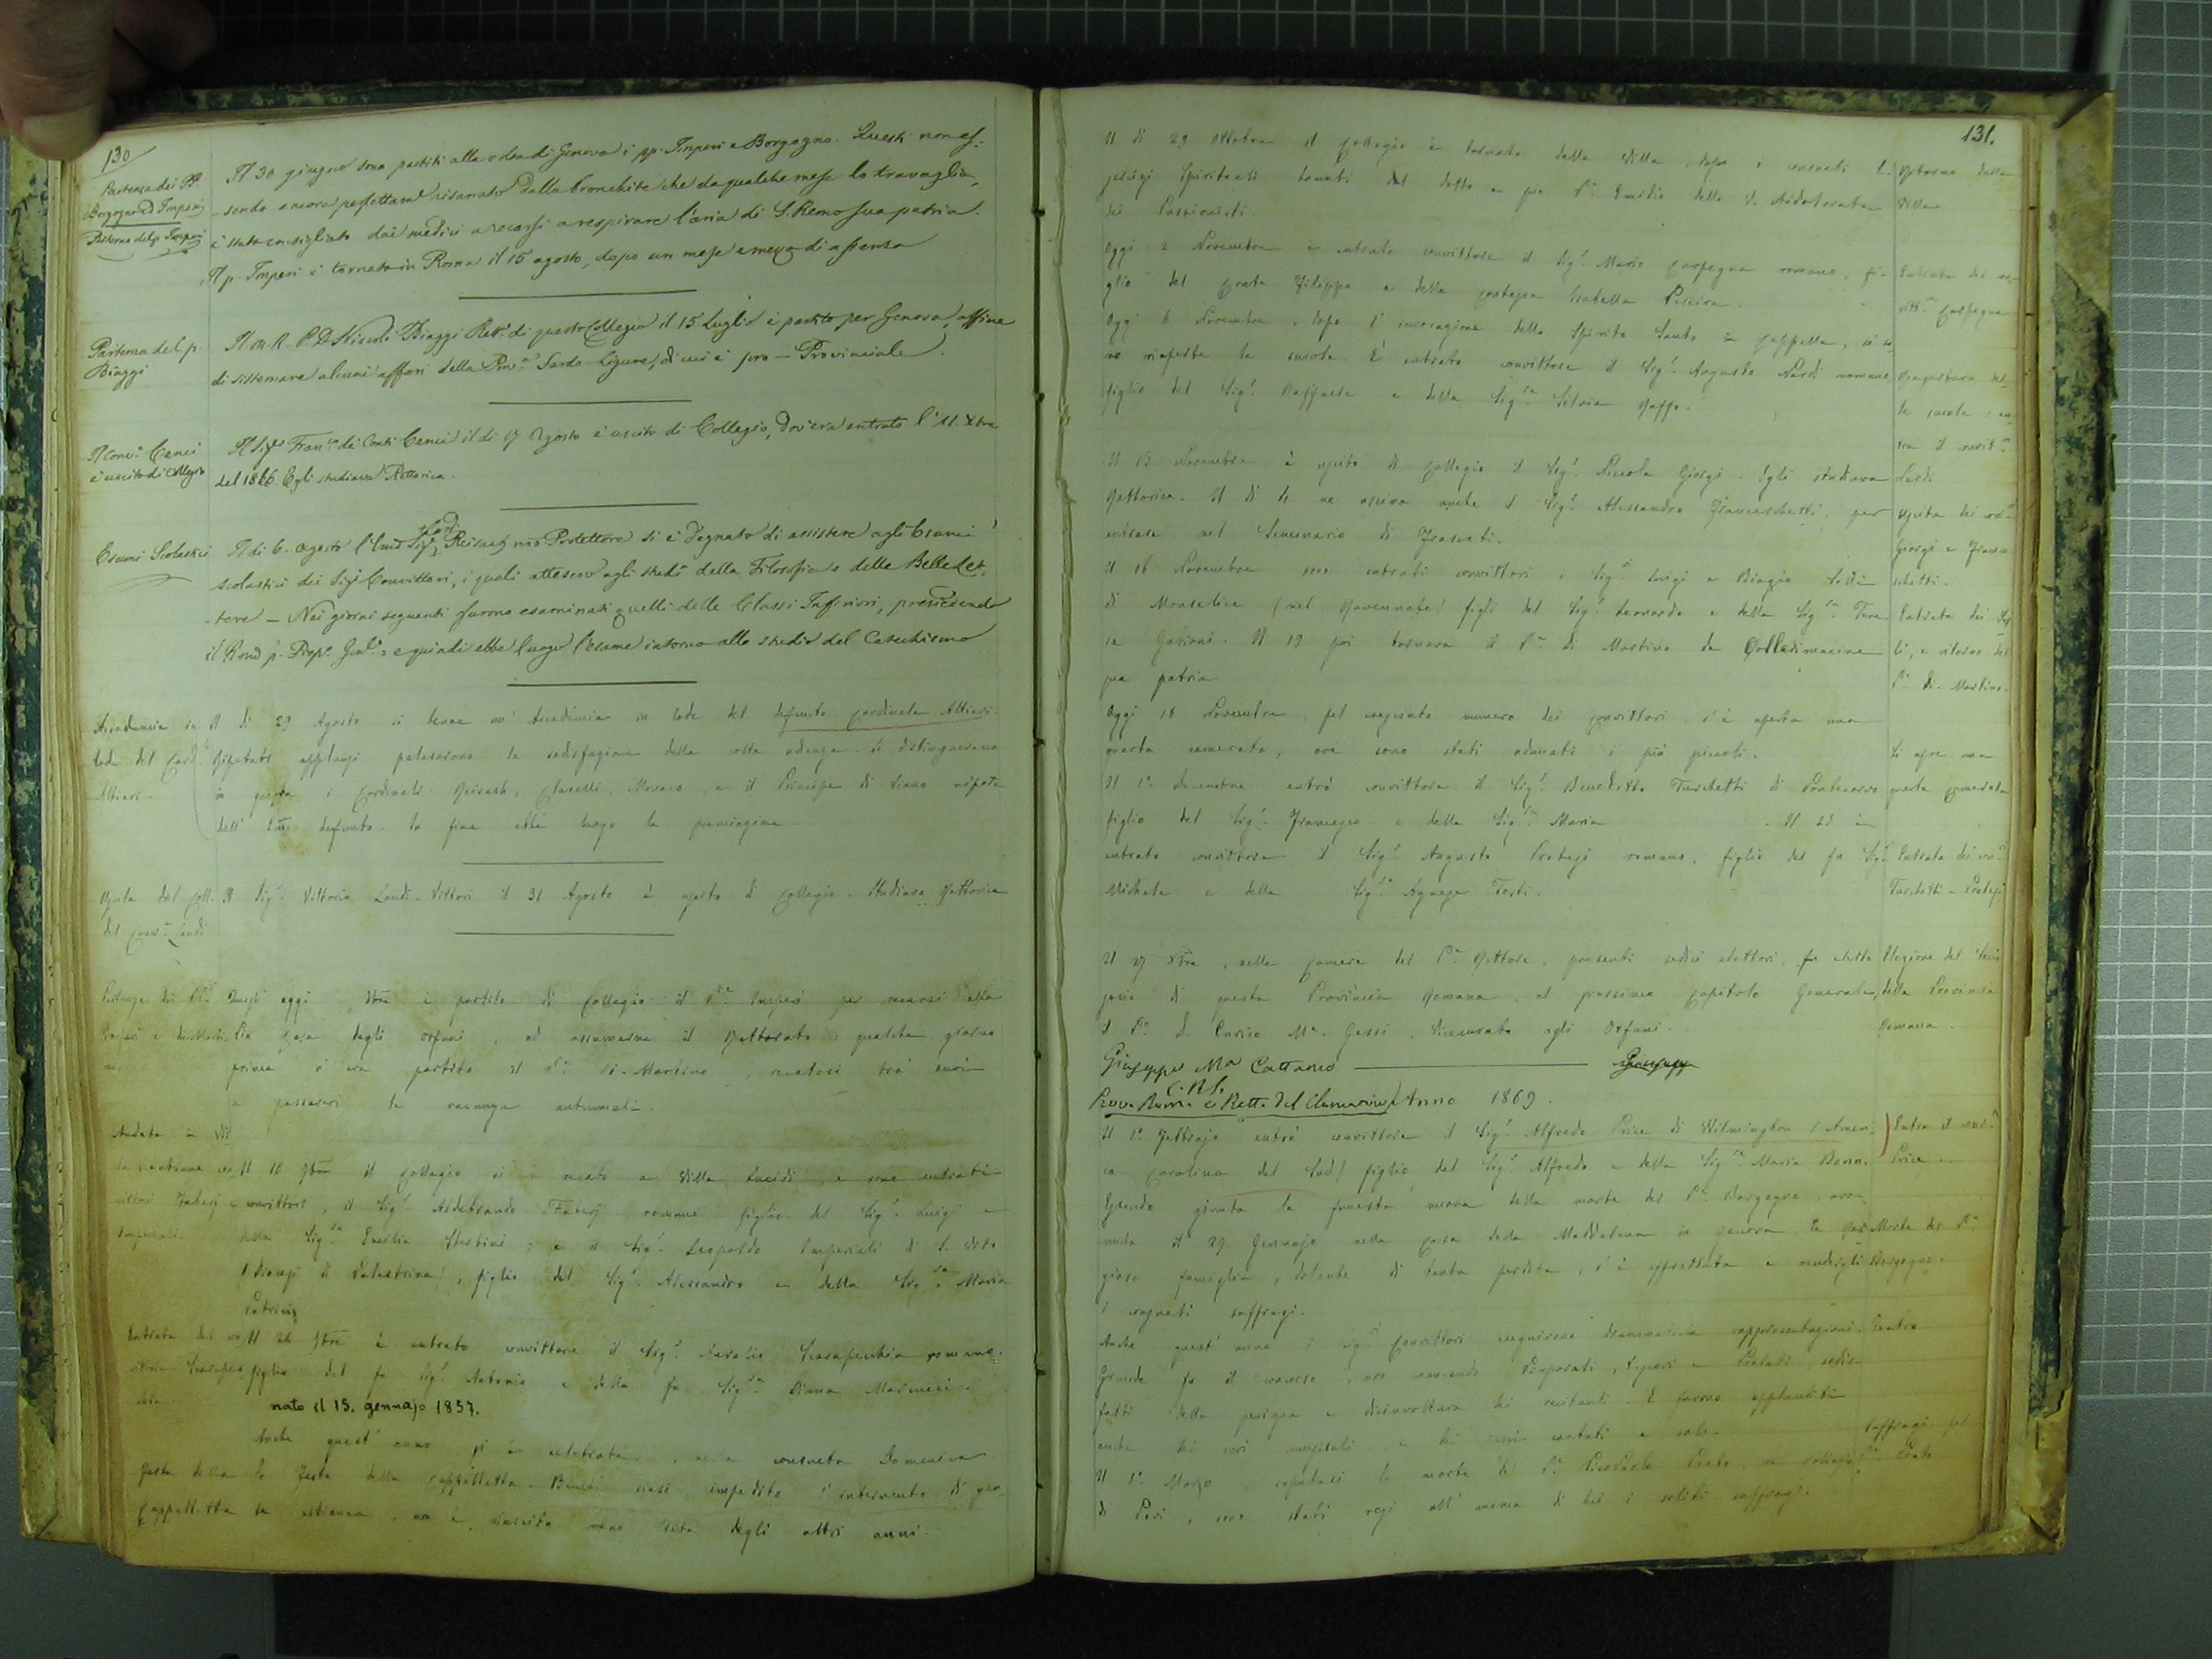 130
Partenza dei PP.
Borgogno ed Imperi
Ritorno del p. Imperi
Il 30 giugno sono partiti alla volta di Genova i pp. Imperi e Borgogno. Questi non es-
sendo ancora perfettam. risanato dalla bronchite che da qualche mese lo travaglia,
è stato consigliato dai medici a recarsi a respirare l'aria di S. Remo sua patria.
Il p. Imperi è tornato in Roma il 15 agosto, dopo un mese e mezzo di assenza
Partenza del p.
Biaggi
Il M. R. P. D. Niccolò Biaggi Rett. di questo Collegio il 15 Luglio è partito per Genova, affine
di sistemare alcuni affari della Prov. Sardo-Ligure, di cui è pro-Provinciale.
Il Conv. Cenci
è uscito di Collegio
Il Sig. Franc. dei Conti Cenci il dì 17 Agosto è uscito di Collegio, dov'era entrato l'11. Xbre
del 1866. Egli studiava Rettorica.
Esami Scolastici
Il dì 6. agosto l'Emo Sig. Card. Reisach nro Protettore si è degnato di assistere agli Esami
scolastici dei Sigi Convittori, i quali attesero agli studi della Filosofia e delle Belle Let-
tere - Nei giorni seguenti furono esaminati quelli delle Classi Inferiori, presiedendo
il Rmo p. Prep. Genle: e quindi ebbe luogo l'esame intorno allo studio del Catechismo
Accademia in
lode del Card.
Altieri.
Il dì 29 Agosto si tenne un'Accademia in lode del defunto Cardinale Altieri.
Ripetuti applausi palesarono la sodisfazione della colta udienza. Si distinguevano
in questa i Cardinali Reisach, Clarelli, Monaco, e il Principe di Viano nipote
dell'Emo defunto. In fine ebbe luogo la premiazione.
Uscita dal Coll.
del Conv. Landi
Il Sig. Vittorio Landi-Vittori il 31 Agosto è uscito di Collegio. Studiava Rettorica
Quest'oggi 9bre è partito di Collegio il P. Imperi per recarsi alla
Pia Casa degli Orfani, ad assumerne il Rettorato: qualche giorno
prima s'era partito il P. Di-Martino, recatosi tra' suoi
a passarvi le vacanze autunnali.
Andata in Vil
Il 10 8bre il Collegio si è recato a Villa Lucidi, e sono entrati
convittori, il Sig. Aldebrando Faberj romano figlio del Sig. Luigi e
della Sig.ra Emilia Sterbini; e il Sig. Leopoldo Imperiali di S. Vito
(diocesi di Palestrina), figlio del Sig. Alessandro e della Sig.ra Maria
Petrini
Il 24 8bre è entrato convittore il Sig. Scarapecchia romano.
figlio del fu Sig. Antonio e della fu Sig.ra Diana Marinucci.
nato il 15. gennajo 1857.
Festa della
Cappelletta
Anche quest'anno si è celebrata, nella consueta Domenica
la Festa della Cappelletta. Benché siasi impedito l'intervento di gen-
te estranea, non è riuscita meno lieta degli altri anni.
131.
Il dì 29 Ottobre il Collegio è tornato dalla Villa, dopo i consueti E-
sercizi Spirituali tenuti dal dotto e pio P. Emidio della V. Addolorata
dei Passionisti.
Ritorno dalla
Villa
Oggi 2 Novembre è entrato convittore il Sig. Mario Carpegna romano, fi-
glio del Conte Filippo e della Contessa
Entrata del con
vitt. Carpegna
Oggi 6 Novembre, dopo l'invocazione dello Spirito Santo in Cappella, si so-
no riaperte le scuole. E' entrato convittore il Sig. Augusto Nardi romano,
figlio del Sig. Raffaele e della Sig.ra Silvia
Riapertura del-
le scuole: en-
tra il convit.
Nardi
Il 13 Novembre è uscito di Collegio il Sig. Nicola Giorgi. Egli studiava
Rettorica. Il dì ne usciva anche il Sig. Alessandro Franceschetti, per
entrare nel Seminario di Frascati.
Uscita dei con.
Giorgi e France
schetti.
Il 16 Novembre sono entrati convittori i Sig.ri Luigi e Biagio
di (nel Ravennate) figli del Sig. Leonardo e della Sig.ra Tere
sa . Il 19 poi tornava il P. Di Martino da Colledimacine
sua patria
li, e ritorno del
P. Di-Martino.
Oggi 18 Novembre, pel cresciuto numero dei Convittori s'è aperta una
quarta camerata, ove sono stati adunati i più piccoli.
Si apre una
quarta Camerata
Il 1° Decembre entrò convittore il Sig. Benedetto Turchetti di Pontecorvo
figlio del Sig. Francesco e della Sig.ra Maria . Il 23 è
entrato convittore il Sig. Augusto Protesi romano, figlio del fu Sig.
Michele e della Sig.ra Agnese Testi.
Entrata dei con.
Turchetti - Protesi
Il 27 Xbre, nelle Camere del P. Rettore, presenti sedici elettori, fu eletto
socio di questa Provincia Romana al prossimo Capitolo Generale,
il P. D. Enrico M. Gessi, Vicecurato agli Orfani.
Elezione del Socio
della Provincia
Romana.
Giuseppe Ma Cattaneo
C.R.S.
Prov. Rom. e Rett. del Clementino Anno 1869.
Il 1° Febbrajo entrò convittore il Sig. Alfredo Price di Wilmington (Ameri-
ca Carolina del Sud) figlio del Sig. Alfredo e della Sig.ra Maria
Entra il conv.
Price.
Essendo giunta la funesta nuova della morte del P. Borgogno, avve
nuta il 29 Gennajo nella Casa della Maddalena in Genova la reli
giosa famiglia, dolente di tanta perdita, s'è affrettata a rendergli
i consueti suffragi.
Morte del P.
Borgogno.
Anche quest'anno i Sig.ri Convittori eseguirono drammatiche rappresentazioni.
Grande fu il concorso, non mancando Porporati, Signori e Prelati, sodis-
fatti della perizia e disinvoltura dei recitanti. E furono applauditi
anche dei cori musicali e dei pezzi cantati a solo.
Teatro
Il 1° Marzo, saputasi la morte del P. Prato,
di Novi, sono stati resi all'anima di lui i soliti suffragi.
Suffragi pel
P. Prato